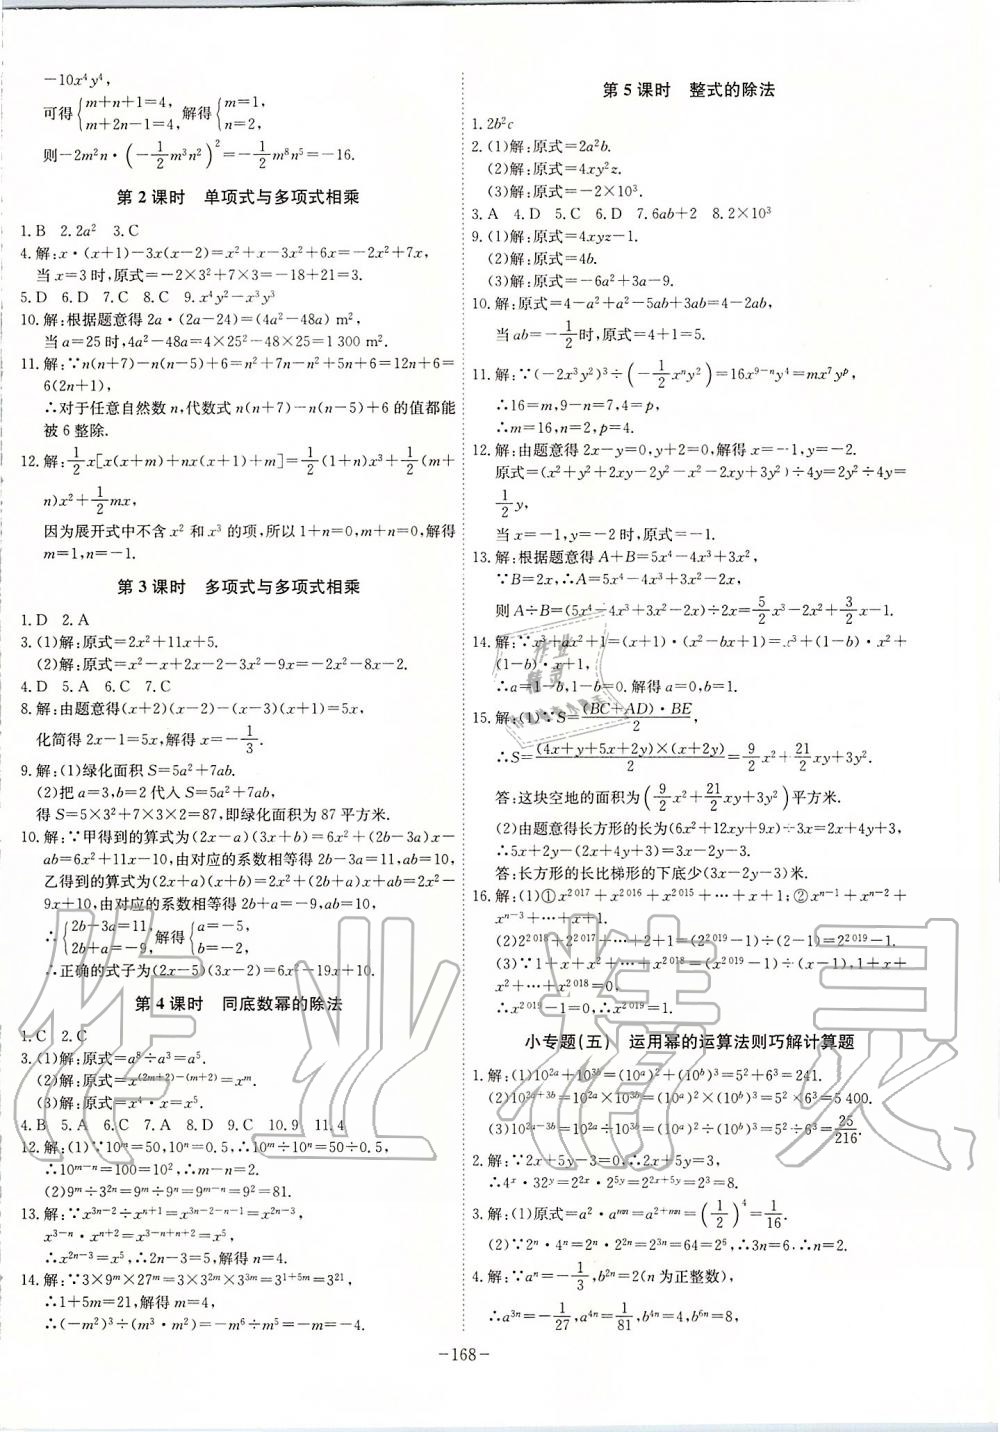 -10x⁴y⁴,
可得{m+n+1=4, m+2n-1=4, 解得{m=1, n=2,
则-2m²n·(-1/2 m³n²)²=-1/2 m⁸n⁵=-16.
第 2 课时 单项式与多项式相乘
1. B 2. 2a² 3. C
4. 解:x·(x+1)-3x(x-2)=x²+x-3x²+6x=-2x²+7x,
当 x=3 时,原式=-2×3²+7×3=-18+21=3.
5. D 6. D 7. C 8. C 9. x⁴y²-x³y³
10. 解:根据题意得 2a·(2a-24)=(4a²-48a) m²,
当 a=25 时,4a²-48a=4×25²-48×25=1 300 m².
11. 解:∵n(n+7)-n(n-5)+6=n²+7n-n²+5n+6=12n+6=
6(2n+1),
∴对于任意自然数 n,代数式 n(n+7)-n(n-5)+6 的值都能
被 6 整除.
12. 解:1/2 x[x(x+m)+nx(x+1)+m]=1/2(1+n)x³+1/2(m+
n)x²+1/2 mx,
因为展开式中不含 x² 和 x³ 的项,所以 1+n=0,m+n=0,解得
m=1,n=-1.
第 3 课时 多项式与多项式相乘
1. D 2. A
3. (1)解:原式=2x²+11x+5.
(2)解:原式=x²-x+2x-2-3x²-9x=-2x²-8x-2.
4. D 5. A 6. C 7. C
8. 解:由题意得(x+2)(x-2)-(x-3)(x+1)=5x,
化简得 2x-1=5x,解得 x=-1/3.
9. 解:(1)绿化面积 S=5a²+7ab.
(2)把 a=3,b=2 代人 S=5a²+7ab,
得 S=5×3²+7×3×2=87,即绿化面积为 87 平方米.
10. 解:∵甲得到的算式为(2x-a)(3x+b)=6x²+(2b-3a)x-
ab=6x²+11x-10,由对应的系数相等得 2b-3a=11,ab=10,
乙得到的算式为(2x+a)(x+b)=2x²+(2b+a)x+ab=2x²-
9x+10,由对应的系数相等得 2b+a=-9,ab=10,
∴{2b-3a=11, 2b+a=-9, 解得{a=-5, b=-2,
∴正确的式子为(2x-5)(3x-2)=6x²-19x+10.
第 4 课时 同底数幂的除法
1. C 2. C
3. (1)解:原式=a⁸÷a³=a⁵.
(2)解:原式=x^(2m+2)-(m+2)=x^m.
(3)解:原式=x⁴·x=x⁵.
4. B 5. A 6. C 7. A 8. D 9. C 10. 9 11. 4
12. 解:(1)∵10^m=50,10^n=0.5,∴10^m÷10^n=50÷0.5,
∴10^(m-n)=100=10²,∴m-n=2.
(2)9^m÷3^(2n)=9^m÷9^n=9^(m-n)=9²=81.
13. 解:∵x^(3n-2)÷x^(n+1)=x^(3n-2-n-1)=x^(2n-3),
x^(3-n)·x^(n+2)=x^(3-n+n+2)=x⁵,
∴x^(2n-3)=x⁵,∴2n-3=5,解得 n=4.
14. 解:∵3×9^m×27^m=3×3^(2m)×3^(3m)=3^(1+5m)=3²¹,
∴1+5m=21,解得 m=4,
∴(-m²)³÷(m³·m²)=-m⁶÷m⁵=-m=-4.
第 5 课时 整式的除法
1. 2b²c
2. (1)解:原式=2a²b.
(2)解:原式=4xy²z.
(3)解:原式=-2×10³.
3. A 4. D 5. C 6. D 7. 6ab+2 8. 2×10³
9. (1)解:原式=4xyz-1.
(2)解:原式=4b.
(3)解:原式=-6a²+3a-9.
10. 解:原式=4-a²+a²-5ab+3ab=4-2ab,
当 ab=-1/2 时,原式=4+1=5.
11. 解:∵(-2x³y²)³÷(-1/2 xⁿy²)=16x^(9-n)y⁴=mx⁷y^p,
∴16=m,9-n=7,4=p,
∴m=16,n=2,p=4.
12. 解:由题意得 2x-y=0,y+2=0,解得 x=-1,y=-2.
原式=(x²+y²+2xy-2y²-x²-2xy+3y²)÷4y=2y²÷4y=
1/2 y,
当 x=-1,y=-2时,原式=-1.
13. 解:根据题意得 A+B=5x⁴-4x³+3x²,
∵B=2x,∴A=5x⁴-4x³+3x²-2x,
则 A÷B=(5x⁴-4x³+3x²-2x)÷2x=5/2 x³-2x²+3/2 x-1.
14. 解:∵x³+ax²+1=(x+1)·(x²-bx+1)=x³+(1-b)·x²+
(1-b)·x+1,
∴a=1-b,1-b=0. 解得 a=0,b=1.
15. 解:(1)∵S=(BC+AD)·BE/2,
∴S=(4x+y+5x+2y)×(x+2y)/2=9/2 x²+21/2 xy+3y².
答:这块空地的面积为(9/2 x²+21/2 xy+3y²)平方米.
(2)由题意得长方形的长为(6x²+12xy+9x)÷3x=2x+4y+3,
∴5x+2y-(2x+4y+3)=3x-2y-3.
答:长方形的长比梯形的下底少(3x-2y-3)米.
16. 解:(1)①x²⁰¹⁷+x²⁰¹⁶+x²⁰¹⁵+…+x+1;②x^(n-1)+x^(n-2)+
x^(n-3)+…+x+1.
(2)2²⁰¹⁸+2²⁰¹⁷+…+2+1=(2²⁰¹⁹-1)÷(2-1)=2²⁰¹⁹-1.
(3)∵1+x+x²+…+x²⁰¹⁸=(x²⁰¹⁹-1)÷(x-1),1+x+
x²+…+x²⁰¹⁸=0,
∴x²⁰¹⁹-1=0,∴x²⁰¹⁹=1.
小专题(五) 运用幂的运算法则巧解计算题
1. 解:(1)10^(2a)+10^(3b)=(10^a)²+(10^b)³=5²+6³=241.
(2)10^(2a+3b)=10^(2a)×10^(3b)=(10^a)²×(10^b)³=5²×6³=5 400.
(3)10^(2a-3b)=10^(2a)÷10^(3b)=(10^a)²÷(10^b)³=5²÷6³=25/216.
2. 解:∵2x+5y-3=0,∴2x+5y=3,
∴4^x·32^y=2^(2x)·2^(5y)=2^(2x+5y)=2³=8.
3. 解:(1)原式=a²·a^(mn)=a^(2+mn)=(1/2)⁴=1/16.
(2)∵2^n·4^n=2^n·2^(2n)=2^(3n)=64=2⁶,∴3n=6,∴n=2.
4. 解:∵a^n=-1/3,b^(2n)=2(n 为正整数),
∴a^(3n)=-1/27,a^(4n)=1/81,b^(4n)=4,b^(6n)=8,
-168-
作业精灵
作业
精灵